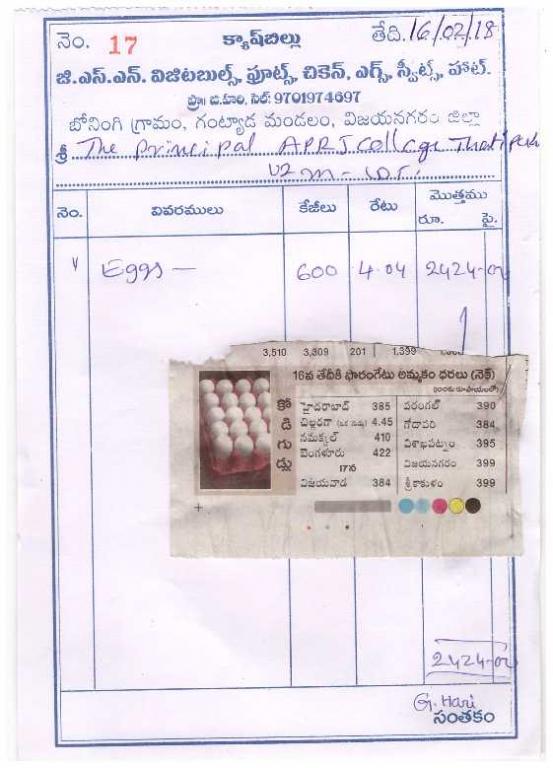 నెం. 17 క్యాష్‌బిల్లు తేది. 16/02/18
జి.ఎస్.ఎన్. విజిటబుల్స్, ఫ్రూట్స్, చికెన్, ఎగ్స్, స్వీట్స్, హాట్.
ప్రొ॥ జి.హరి, సెల్: 9701974697
బోనంగి గ్రామం, గంట్యాడ మండలం, విజయనగరం జిల్లా
శ్రీ The principal APRJ College Thatipudi
VZM - Dt.
నెం. వివరములు కేజీలు రేటు మొత్తము
రూ. పై.
1 Eggs — 600 4.04 2424-00
3,510 3,309 201 1,399
16వ తేదీకి ఫారంగేటు అమ్మకం ధరలు (నెక్)
కోడిగుడ్లు
హైదరాబాద్ 385 వరంగల్ 390
చిల్లరగా 4.45 గోదావరి 384
నమక్కల్ 410 విశాఖపట్నం 395
బెంగళూరు 422 విజయనగరం 399
విజయవాడ 384 శ్రీకాకుళం 399
2424-00
G. Hari
సంతకం